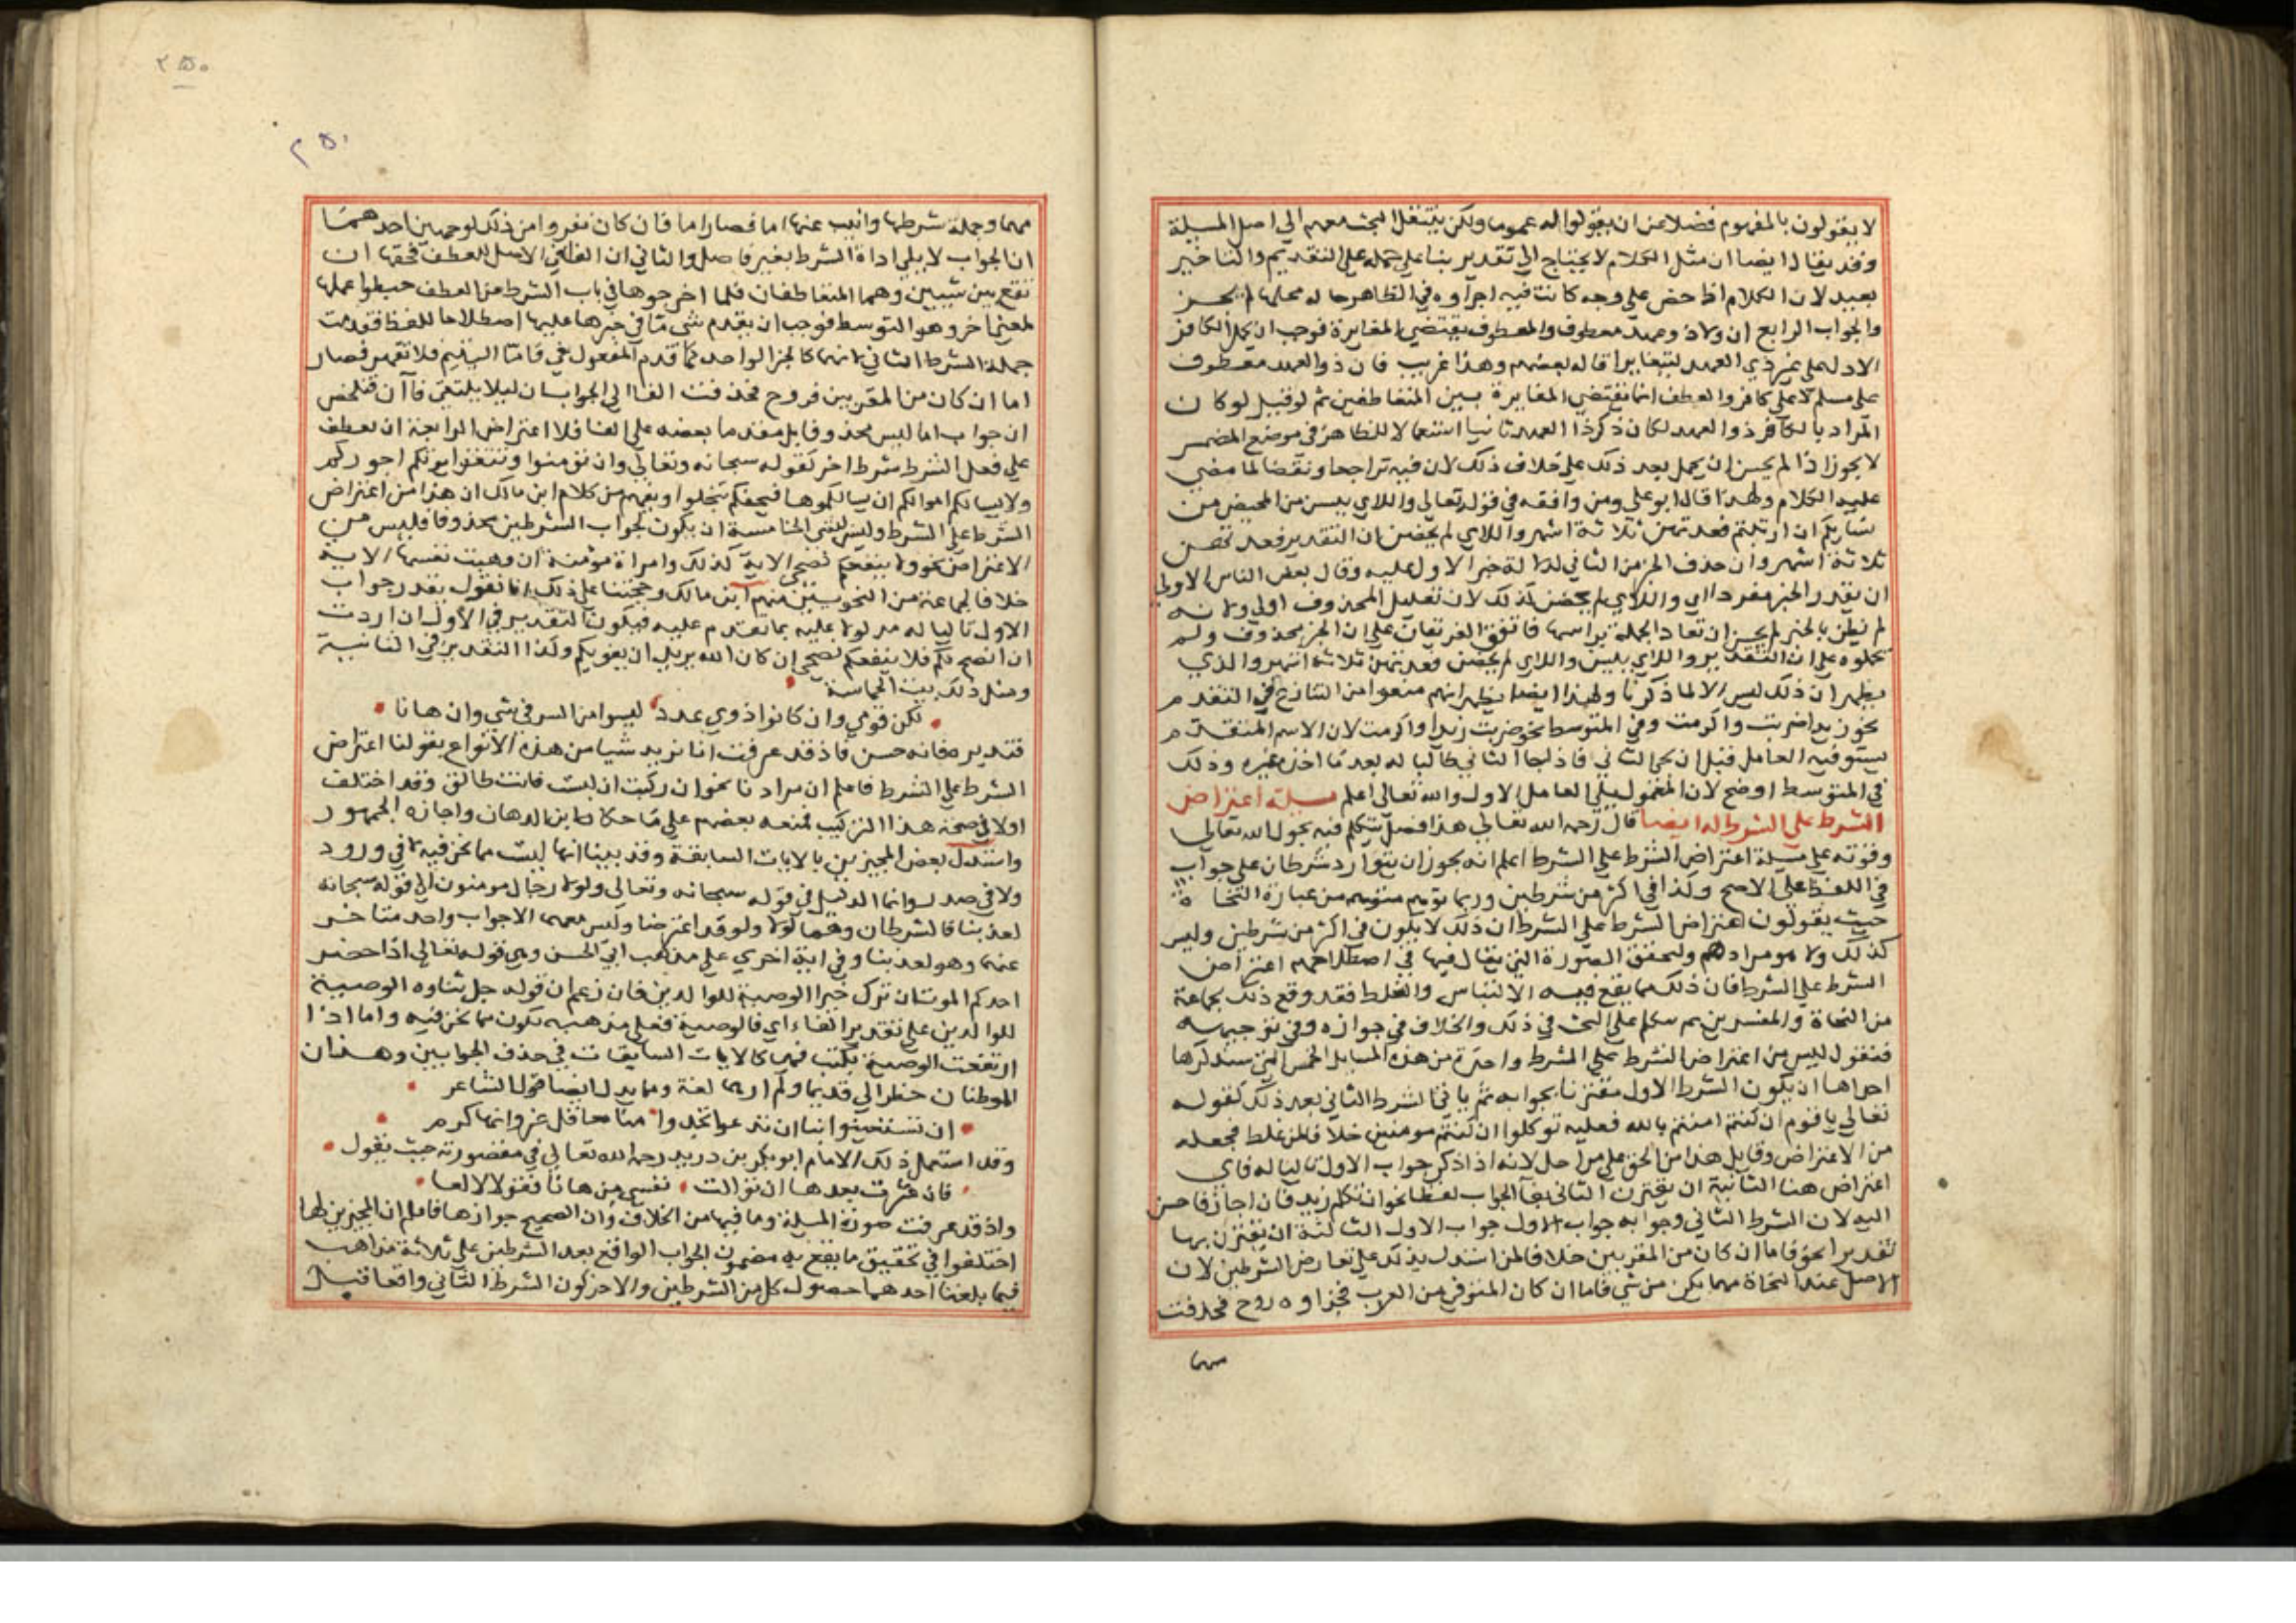 لا يقولون بالمفهوم فضلا عن ان يقولوا له عموما ولكن ينتقل البحث معهم الي اصل المسيلة
وقد يقال ايضا ان مثل الكلام لا يحتاج الي تقدير بنا علي حمله علي التقديم والتاخير
بعيد لان الكلام اذا حض علي وجه كانت فيه اجزاوه في الظاهر حالة محلها لم يحسن
والجواب الرابع ان ولا ذو عهد معطوف والمعطوف يقتضي المغايرة فوجب ان يحمل الكافر
الاول علي غير ذي العهد ليتغايرا قاله بعضهم وهذا غريب فان ذو العهد معطوف
علي مسلم لا علي كافر والعطف انما يقتضي المغايرة بين المتعاطفين ثم لو قيل لو كان
المراد بالكافر ذو العهد لكان ذكر ذا العهد ثانيا استعمالا للظاهر في موضع المضمر
لا يجوز اذا لم يحسن ان يحمل بعد ذلك علي خلاف ذلك لان فيه تراجعا ونقضا لما مضي
عليه الكلام ولهذا قال ابو علي ومن وافقه في قوله تعالي واللاي ييسن من المحيض من
نسايكم ان ارتبتم فعدتهن ثلاثة اشهر واللاي لم يحضن ان التقدير فعدتهن
ثلاثة اشهر وان حذف الخبر من الثاني لدلالة خبر الاول عليه وقال بعض الناس الاولي
ان يقدر الخبر مفردا اي واللاي لم يحضن كذلك لان تقليل المحذوف اولي ولانه
لم نطق بالخبر لم يحسن ان تعاد الجملة براسها فاتفق الفريقان علي ان الخبر محذوف ولم
يحملوه علي ان التقدير واللاي ييسن واللاي لم يحضن فعدتهن ثلاثة اشهر والذي
يظهر ان ذلك ليس الا لما ذكرنا ولهذا ايضا يظهر انهم منعوا من التنازع في المتقدم
نحو زيدا ضربت واكرمت وفي المتوسط نحو ضربت زيدا واكرمت لان الاسم المتقدم
يستوفيه العامل قبل ان يجي الثاني فاذا جا الثاني طالبا له بعد ما اخذه غيره وذلك
في المتوسط اوضح لان المعمول يلي العامل الاول والله تعالي اعلم مسيلة اعتراض
الشرط علي الشرط له ايضا قال رحمه الله تعالي هذا فصل نتكلم فيه بحول الله تعالي
وقوته علي مسيلة اعتراض الشرط علي الشرط اعلم انه يجوز ان يتوارد شرطان علي جواب
في اللفظ علي الاصح وكذا في اكثر من شرطين وربما توهم متوهم من عبارة النحاة
حيث يقولون اعتراض الشرط علي الشرط ان ذلك لا يكون في اكثر من شرطين وليس
كذلك ولا هو مرادهم ولنحقق الصورة التي يقال فيها في اصطلاحهم اعتراض
الشرط علي الشرط فان ذلك مما يقع فيه الالتباس والغلط فقد وقع ذلك لجماعة
من النحاة والمفسرين ثم نتكلم علي البحث في ذلك والخلاف في جوازه وفي توجيهه
فنقول ليس من اعتراض الشرط علي الشرط واحدة من هذه المسايل الخمس التي سنذكرها
احداها ان يكون الشرط الاول مقترنا بجوابه ثم ياتي الشرط الثاني بعد ذلك كقوله
تعالي يا قوم ان كنتم امنتم بالله فعليه توكلوا ان كنتم مومنين خلافا لمن غلط فجعله
من الاعتراض وقايل هذا من الحق علي مراحل لانه اذا ذكر جواب الاول تاليا له فاي
اعتراض هنا الثانية ان يقترن الثاني بفا الجواب لفظا نحو ان تكلم زيد فان اجاز فاحسن
اليه لان الشرط الثاني وجوابه جواب الاول الثالثة ان يقترن بها
تقديرا نحو فاما ان كان من المقربين خلافا لمن استدل بذلك علي تعارض الشرطين لان
الاصل عند النحاة مهما يكن من شي فاما ان كان المتوفي من المقربين فجزاوه روح فحذفت
مهما
٢٥٠
٢٥٠
مهما وجملة شرطها وانيب عنها اما فصار اما فان كان ففروا من ذلك لوجهين احدهما
ان الجواب لا يلي اداة الشرط بغير فاصل والثاني ان الفا في الاصل للعطف فحقها ان
تقع بين شيين وهما المتعاطفان فلما اخرجوها في باب الشرط عن العطف حفظوا عليها
المعني الاخر وهو التوسط فوجب ان يقدم شي مما في حيزها عليها اصطلاحا للفظ فقدمت
جملة الشرط الثاني لانها كالجزا الواحد كما قدم المفعول في فاما اليتيم فلا تقهر فصار
اما ان كان من المقربين فروح فحذفت الفا التي لجواب ان ليلا يلتقي فاان فتلخص
ان جواب اما ليس محذوفا بل مقدما بعضه علي الفا فلا اعتراض الرابعة ان يعطف
علي فعل الشرط شرط اخر كقوله سبحانه وتعالي وان تؤمنوا وتتقوا يوتكم اجوركم
ولا يسالكم اموالكم ان يسالكموها فيحفكم تبخلوا ويفهم من كلام ابن مالك ان هذا من اعتراض
الشرط علي الشرط وليس بشي الخامسة ان يكون جواب الشرطين محذوفا فليس من
الاعتراض نحو ولا ينفعكم نصحي الاية كذلك وامراة مومنة ان وهبت نفسها الاية
خلافا لجماعة من النحويين منهم ابن مالك وحجتنا علي ذلك انا نقول يقدر جواب
الاول تاليا له مدلولا عليه بما تقدم عليه فيكون التقدير في الاول ان اردت
ان انصح لكم فلا ينفعكم نصحي ان كان الله يريد ان يغويكم وكذا التقدير في الثانية
ومثل ذلك بيت الحماسة
لكن قومي وان كانوا ذوي عدد ليسوا من الشر في شي وان هانا
فتدبره فانه حسن فاذ قد عرفت انا نريد شيا من هذه الانواع بقولنا اعتراض
الشرط علي الشرط فاعلم ان مرادنا نحو ان ركبت ان لبست فانت طالق وقد اختلف
اولا في صحة هذا التركيب فمنعه بعضهم علي ما حكاه ابن الدهان واجازه الجمهور
واستدل بعض المجيزين بالايات السابقة وقد بينا انها ليست مما نحن فيه لا في ورود
ولا في صدر وانما الدليل في قوله سبحانه وتعالي ولولا رجال مومنون الي قوله سبحانه
لعذبنا فالشرطان وهما لولا ولو قد اعترضا وليس معهما الا جواب واحد متاخر
عنهما وهو لعذبنا وفي اية اخري علي مذهب ابي الحسن وهي قوله تعالي اذا حضر
احدكم الموت ان ترك خيرا الوصية للوالدين فان زعم ان قوله جل ثناوه الوصية
للوالدين علي تقدير الفاء اي فالوصية فعلي مذهبه تكون مما نحن فيه واما اذا
ارتفعت الوصية بكتب فهي كالايات السابقات في حذف الجوابين وهذان
الموطنان خطرا لي قديما ولم ارهما لغيري ومما يدل ايضا قول الشاعر
ان تستغيثوا بنا ان تذعروا تجدوا منا معاقل عز زانها كرم
وقد استعمل ذلك الامام ابو بكر بن دريد رحمه الله تعالي في مقصورته حيث يقول
فان عثرت بعدها ان نوالت نفسي من هاتا فقولا لا لعا
واذ قد عرفت صورة المسيلة وما فيها من الخلاف وان الصحيح جوازها فاعلم ان المجيزين لها
اختلفوا في تحقيق ما يقع به مضمون الجواب الواقع بعد الشرطين علي ثلاثة مذاهب
فيما بلغنا احدهما حصول كل من الشرطين والاخر كون الشرط الثاني واقعا قبل